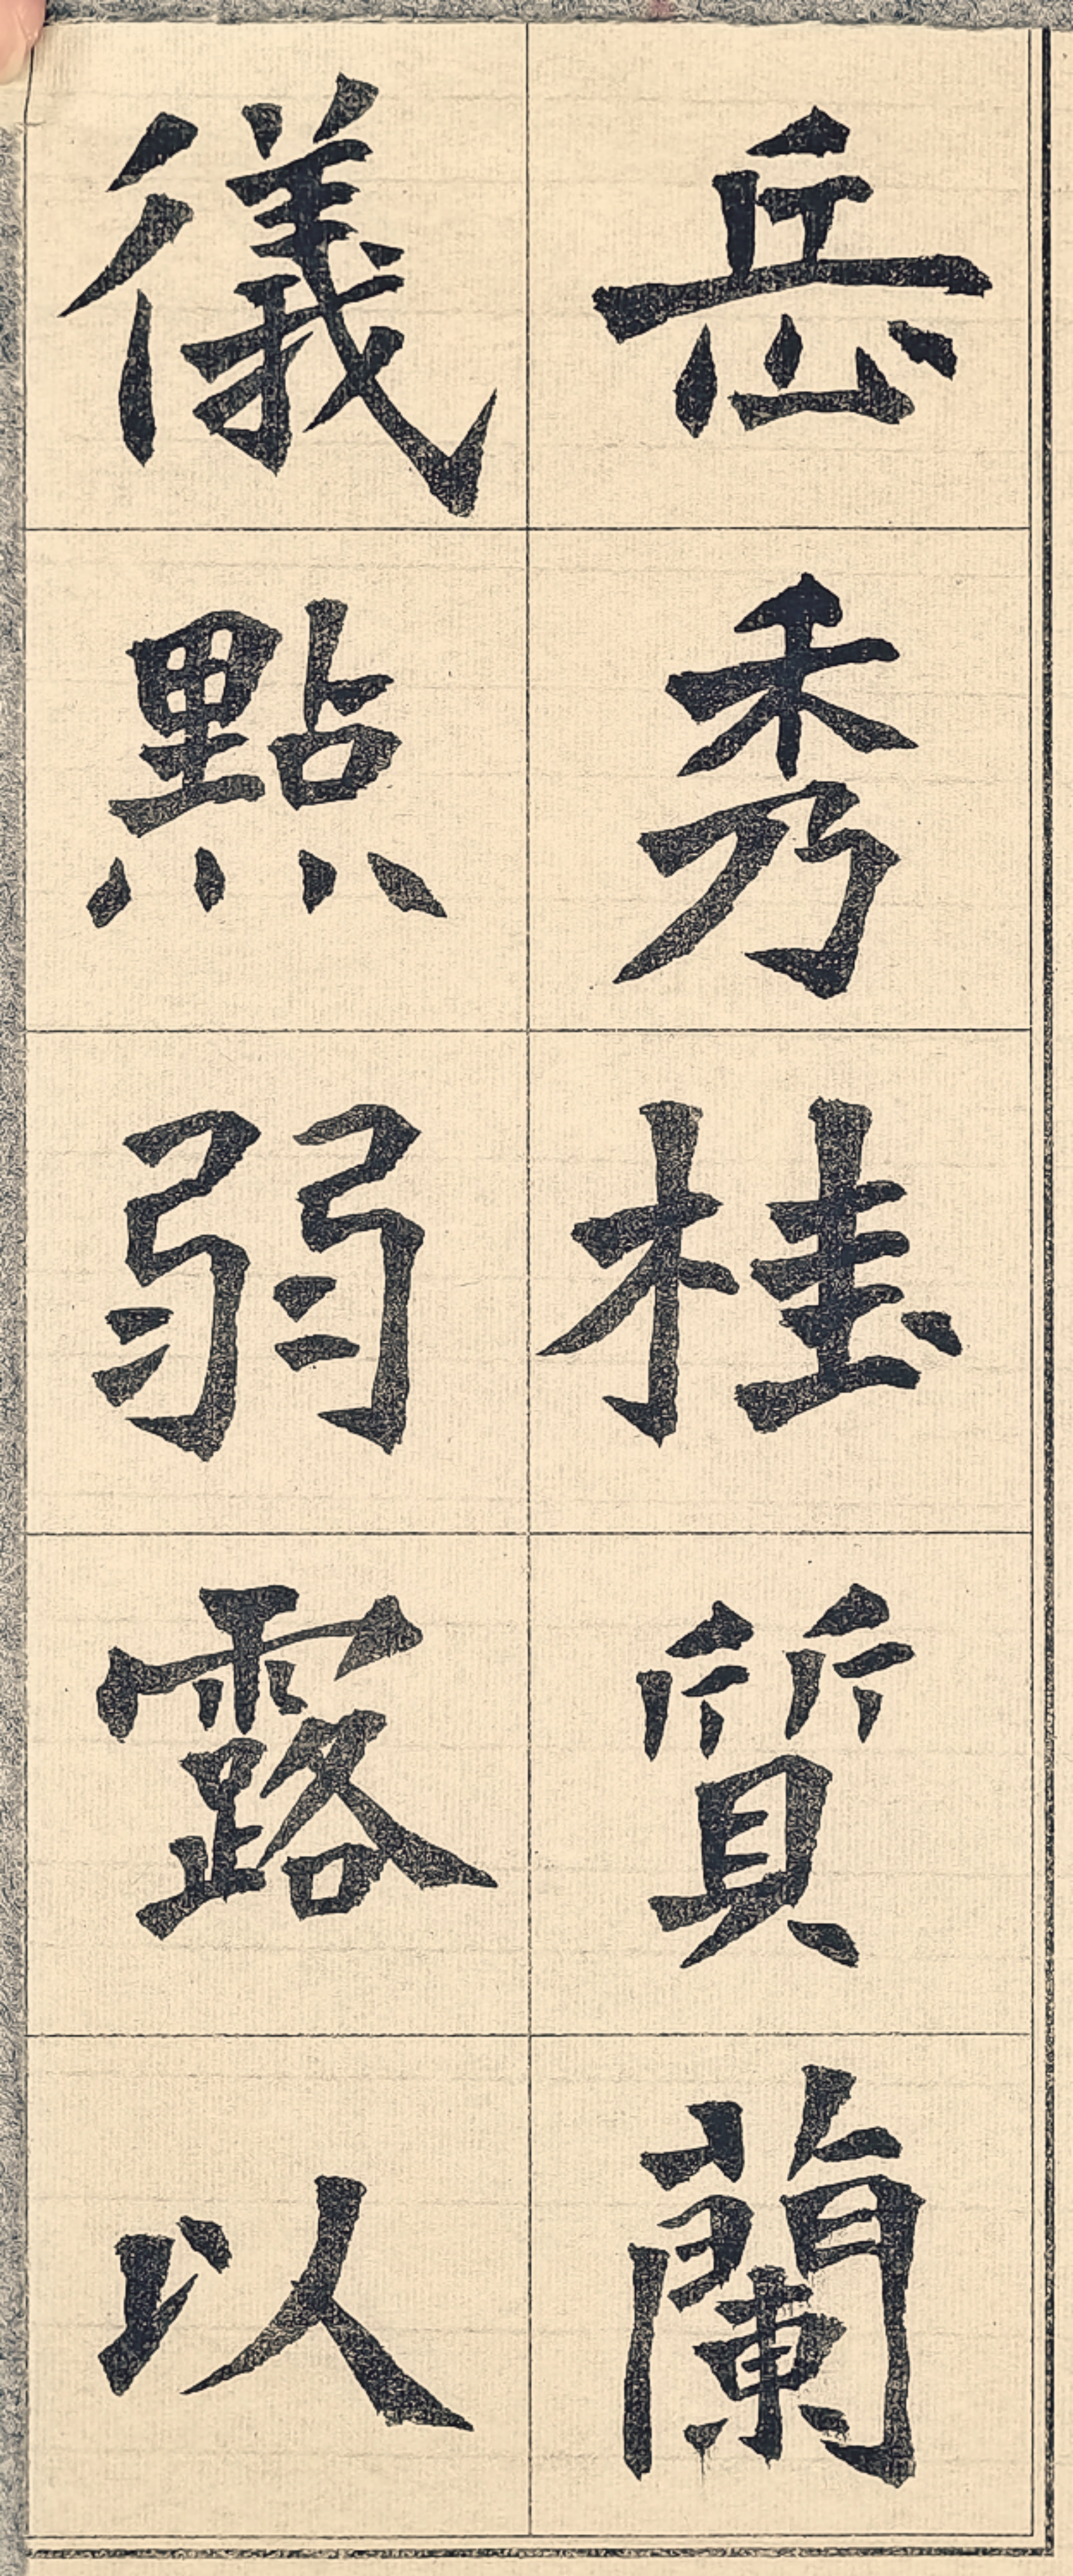 岳秀桂質蘭
儀點弱露以